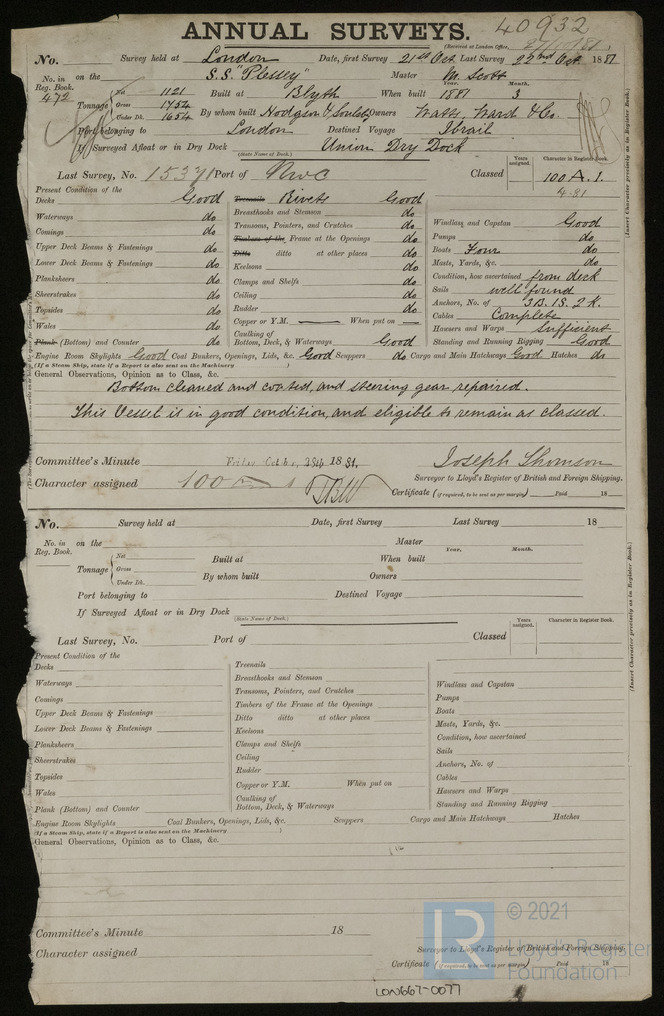 ANNUAL SURVEYS. 40932
(Received at London Office,
No. Survey held at London Date, first Survey 21st Oct Last Survey 22nd Oct. 1881
No. in Reg. Book. 472 on the S.S. "Plessy" Master M. Scott
Tonnage Net 1121 Gross 1754 Under Dk. 1654 Built at Blyth When built 1881 Year. Month. 3
By whom built Hodgson & Soulsby Owners Watts, Ward & Co.
Port belonging to London Destined Voyage Ibrail
If Surveyed Afloat or in Dry Dock Union Dry Dock
(State Name of Dock.)
Last Survey, No. 15371 Port of Nwc Classed Years assigned. Character in Register Book. 100 A.1.
4.81
Present Condition of the
Decks Good Treenails Rivets Good
Waterways do Breasthooks and Stemson do
Comings do Transoms, Pointers, and Crutches do Windlass and Capstan Good
Upper Deck Beams & Fastenings do Timbers of the Frame at the Openings do Pumps do
Lower Deck Beams & Fastenings do Ditto ditto at other places do Boats Four do
Planksheers do Keelsons do Masts, Yards, &c. do
Sheerstrakes do Clamps and Shelfs do Condition, how ascertained from deck
Topsides do Ceiling do Sails well found
Wales do Rudder do Anchors, No. of 3B. 1S. 2K.
Copper or Y.M. When put on Cables Complete
Plank (Bottom) and Counter do Caulking of Bottom, Deck, & Waterways Good Hawsers and Warps Sufficient
Standing and Running Rigging Good
Engine Room Skylights Good Coal Bunkers, Openings, Lids, &c. Good Scuppers do Cargo and Main Hatchways Good Hatches do
(If a Steam Ship, state if a Report is also sent on the Machinery )
General Observations, Opinion as to Class, &c.
Bottom cleaned and coated, and steering gear repaired.
This Vessel is in good condition, and eligible to remain as classed.
Committee's Minute Friday October, 28th 1881. Joseph Thomson
Character assigned 100 A 1 Surveyor to Lloyd's Register of British and Foreign Shipping.
Certificate (if required, to be sent as per margin) Paid 18
(Insert Character precisely as in Register Book.)
No. Survey held at Date, first Survey Last Survey 18
No. in Reg. Book. on the Master
Tonnage Net Gross Under Dk. Built at When built Year. Month.
By whom built Owners
Port belonging to Destined Voyage
If Surveyed Afloat or in Dry Dock
(State Name of Dock.)
Last Survey, No. Port of Classed Years assigned. Character in Register Book.
Present Condition of the
Decks Treenails
Waterways Breasthooks and Stemson
Comings Transoms, Pointers, and Crutches Windlass and Capstan
Upper Deck Beams & Fastenings Timbers of the Frame at the Openings Pumps
Lower Deck Beams & Fastenings Ditto ditto at other places Boats
Planksheers Keelsons Masts, Yards, &c.
Sheerstrakes Clamps and Shelfs Condition, how ascertained
Topsides Ceiling Sails
Wales Rudder Anchors, No. of
Copper or Y.M. When put on Cables
Plank (Bottom) and Counter Caulking of Bottom, Deck, & Waterways Hawsers and Warps
Standing and Running Rigging
Engine Room Skylights Coal Bunkers, Openings, Lids, &c. Scuppers Cargo and Main Hatchways Hatches
(If a Steam Ship, state if a Report is also sent on the Machinery )
General Observations, Opinion as to Class, &c.
(Insert Character precisely as in Register Book.)
Committee's Minute 18
Character assigned Surveyor to Lloyd's Register of British and Foreign Shipping.
Certificate (if required, to be sent as per margin) Paid 18
LR © 2021
Lloyd's Register
Foundation
LON667-0077